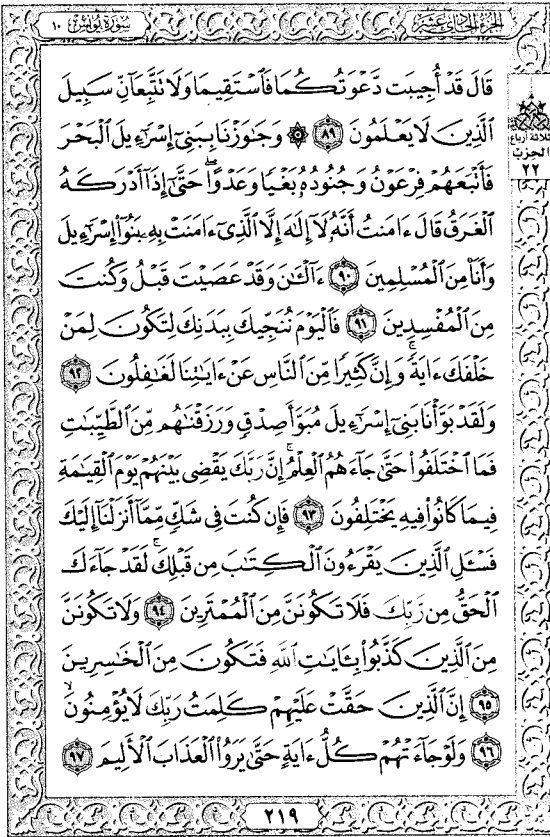 سورة يونس ١٠
الجزء الحادي عشر
قَالَ قَدْ أُجِيبَت دَّعْوَتُكُمَا فَٱسْتَقِيمَا وَلَا تَتَّبِعَآنِّ سَبِيلَ
ٱلَّذِينَ لَا يَعْلَمُونَ ٨٩ ۞ وَجَٰوَزْنَا بِبَنِىٓ إِسْرَٰٓءِيلَ ٱلْبَحْرَ
فَأَتْبَعَهُمْ فِرْعَوْنُ وَجُنُودُهُۥ بَغْيًا وَعَدْوًا ۖ حَتَّىٰٓ إِذَآ أَدْرَكَهُ
ٱلْغَرَقُ قَالَ ءَامَنتُ أَنَّهُۥ لَآ إِلَٰهَ إِلَّا ٱلَّذِىٓ ءَامَنَتْ بِهِۦ بَنُوٓا۟ إِسْرَٰٓءِيلَ
وَأَنَا۠ مِنَ ٱلْمُسْلِمِينَ ٩٠ ءَآلْـَٰٔنَ وَقَدْ عَصَيْتَ قَبْلُ وَكُنتَ
مِنَ ٱلْمُفْسِدِينَ ٩١ فَٱلْيَوْمَ نُنَجِّيكَ بِبَدَنِكَ لِتَكُونَ لِمَنْ
خَلْفَكَ ءَايَةً ۚ وَإِنَّ كَثِيرًا مِّنَ ٱلنَّاسِ عَنْ ءَايَٰتِنَا لَغَٰفِلُونَ ٩٢
وَلَقَدْ بَوَّأْنَا بَنِىٓ إِسْرَٰٓءِيلَ مُبَوَّأَ صِدْقٍ وَرَزَقْنَٰهُم مِّنَ ٱلطَّيِّبَٰتِ
فَمَا ٱخْتَلَفُوا۟ حَتَّىٰ جَآءَهُمُ ٱلْعِلْمُ ۚ إِنَّ رَبَّكَ يَقْضِى بَيْنَهُمْ يَوْمَ ٱلْقِيَٰمَةِ
فِيمَا كَانُوا۟ فِيهِ يَخْتَلِفُونَ ٩٣ فَإِن كُنتَ فِى شَكٍّ مِّمَّآ أَنزَلْنَآ إِلَيْكَ
فَسْـَٔلِ ٱلَّذِينَ يَقْرَءُونَ ٱلْكِتَٰبَ مِن قَبْلِكَ ۚ لَقَدْ جَآءَكَ
ٱلْحَقُّ مِن رَّبِّكَ فَلَا تَكُونَنَّ مِنَ ٱلْمُمْتَرِينَ ٩٤ وَلَا تَكُونَنَّ
مِنَ ٱلَّذِينَ كَذَّبُوا۟ بِـَٔايَٰتِ ٱللَّهِ فَتَكُونَ مِنَ ٱلْخَٰسِرِينَ
٩٥ إِنَّ ٱلَّذِينَ حَقَّتْ عَلَيْهِمْ كَلِمَتُ رَبِّكَ لَا يُؤْمِنُونَ
٩٦ وَلَوْ جَآءَتْهُمْ كُلُّ ءَايَةٍ حَتَّىٰ يَرَوُا۟ ٱلْعَذَابَ ٱلْأَلِيمَ ٩٧
ثلاثة أرباع
الحزب
٢٢
٢١٩